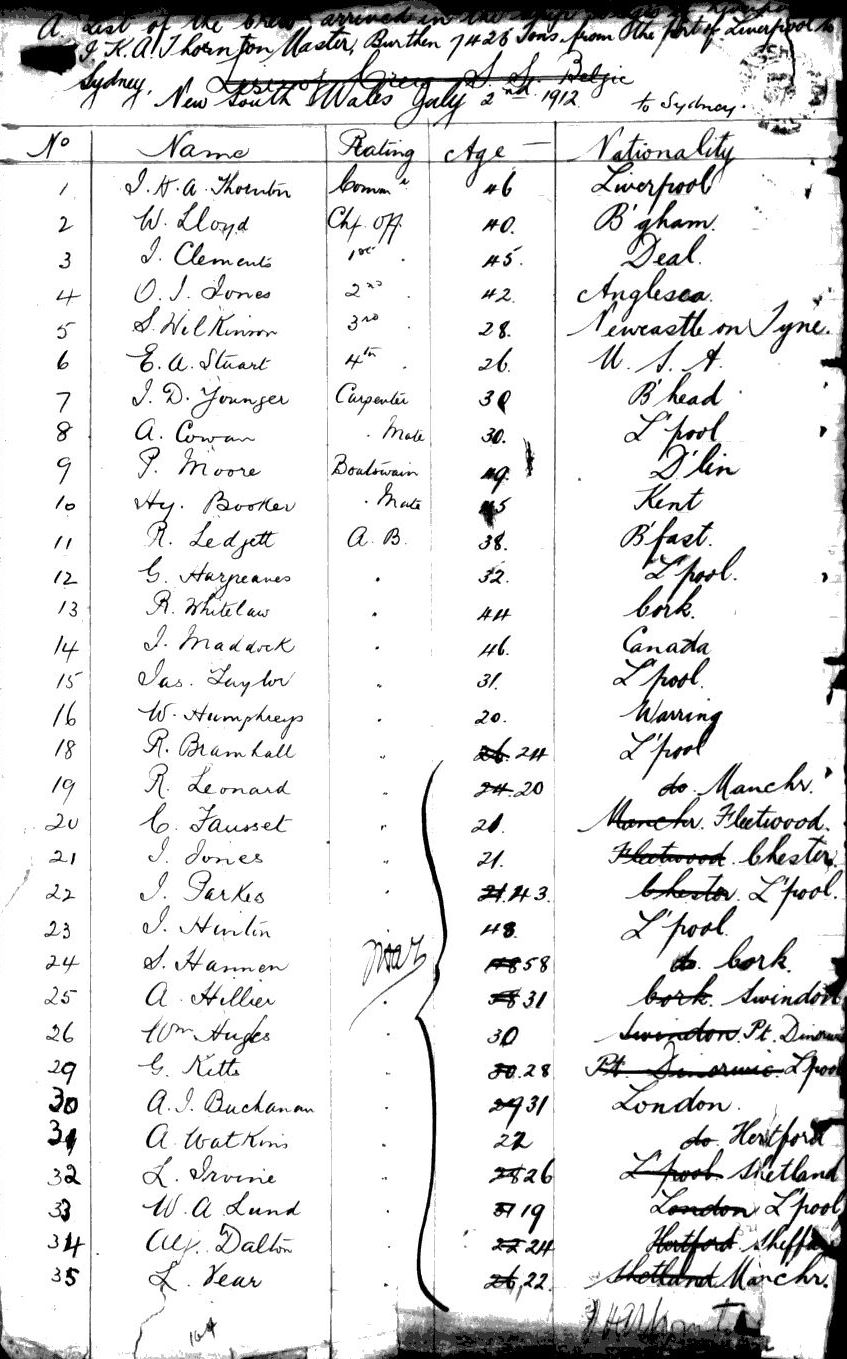 A List of the Crew arrived in the
J. K. A. Thornton Master, Burthen 7426 Tons from the Port of Liverpool to
Sydney, S. S. Belgic
New South Wales July 2nd 1912 to Sydney.
No Name Rating Age — Nationality
1 J. K. A. Thornton Commr 46 Liverpool
2 W. Lloyd Chf. Off. 40. B'gham.
3 J. Clements 1st . 45. Deal.
4 O. J. Jones 2nd . 42. Anglesea.
5 S. Wilkinson 3rd . 28. Newcastle on Tyne.
6 E. A. Stuart 4th . 26. U. S. A.
7 J. D. Younger Carpenter 30 B'head
8 A. Cowan . Mate 30. L'pool
9 P. Moore Boatswain 49. D'lin
10 Hy. Booker . Mate 45 Kent
11 R. Ledgett A. B. 38. B'fast.
12 G. Hargreaves . 32. L'pool.
13 R. Whitelaw . 44 Cork.
14 J. Maddock . 46. Canada
15 Jas. Taylor . 31. L'pool.
16 W. Humphreys . 20. Warring
18 R. Bramhall " 26. 24 L'pool
19 R. Leonard " 24. 20 do. Manchr.
20 C. Fausset " 21. Manchr. Fleetwood.
21 J. Jones " 21. Fleetwood. Chester.
22 J. Parkes . 21. 43. Chester. L'pool.
23 J. Hinlin . 48. L'pool.
24 S. Hannen 48 58 do. Cork.
25 A. Hillier . 58 31 Cork. Swindon
26 Wm Huges . 30 Swindon. Pt. Dinorwic
29 G. Kitts . 30. 28 Pt. Dinorwic. L'pool
30 A. J. Buchanan . 29 31 London.
31 A. Watkins . 22 do. Hertford
32 L. Irvine " 28 26 L'pool. Shetland
33 W. A Lund . 31 19 London L'pool
34 Alf. Dalton . 22 24 Hertford. Sheff
35 L. Vear . 26, 22. Shetland Manchr.
104